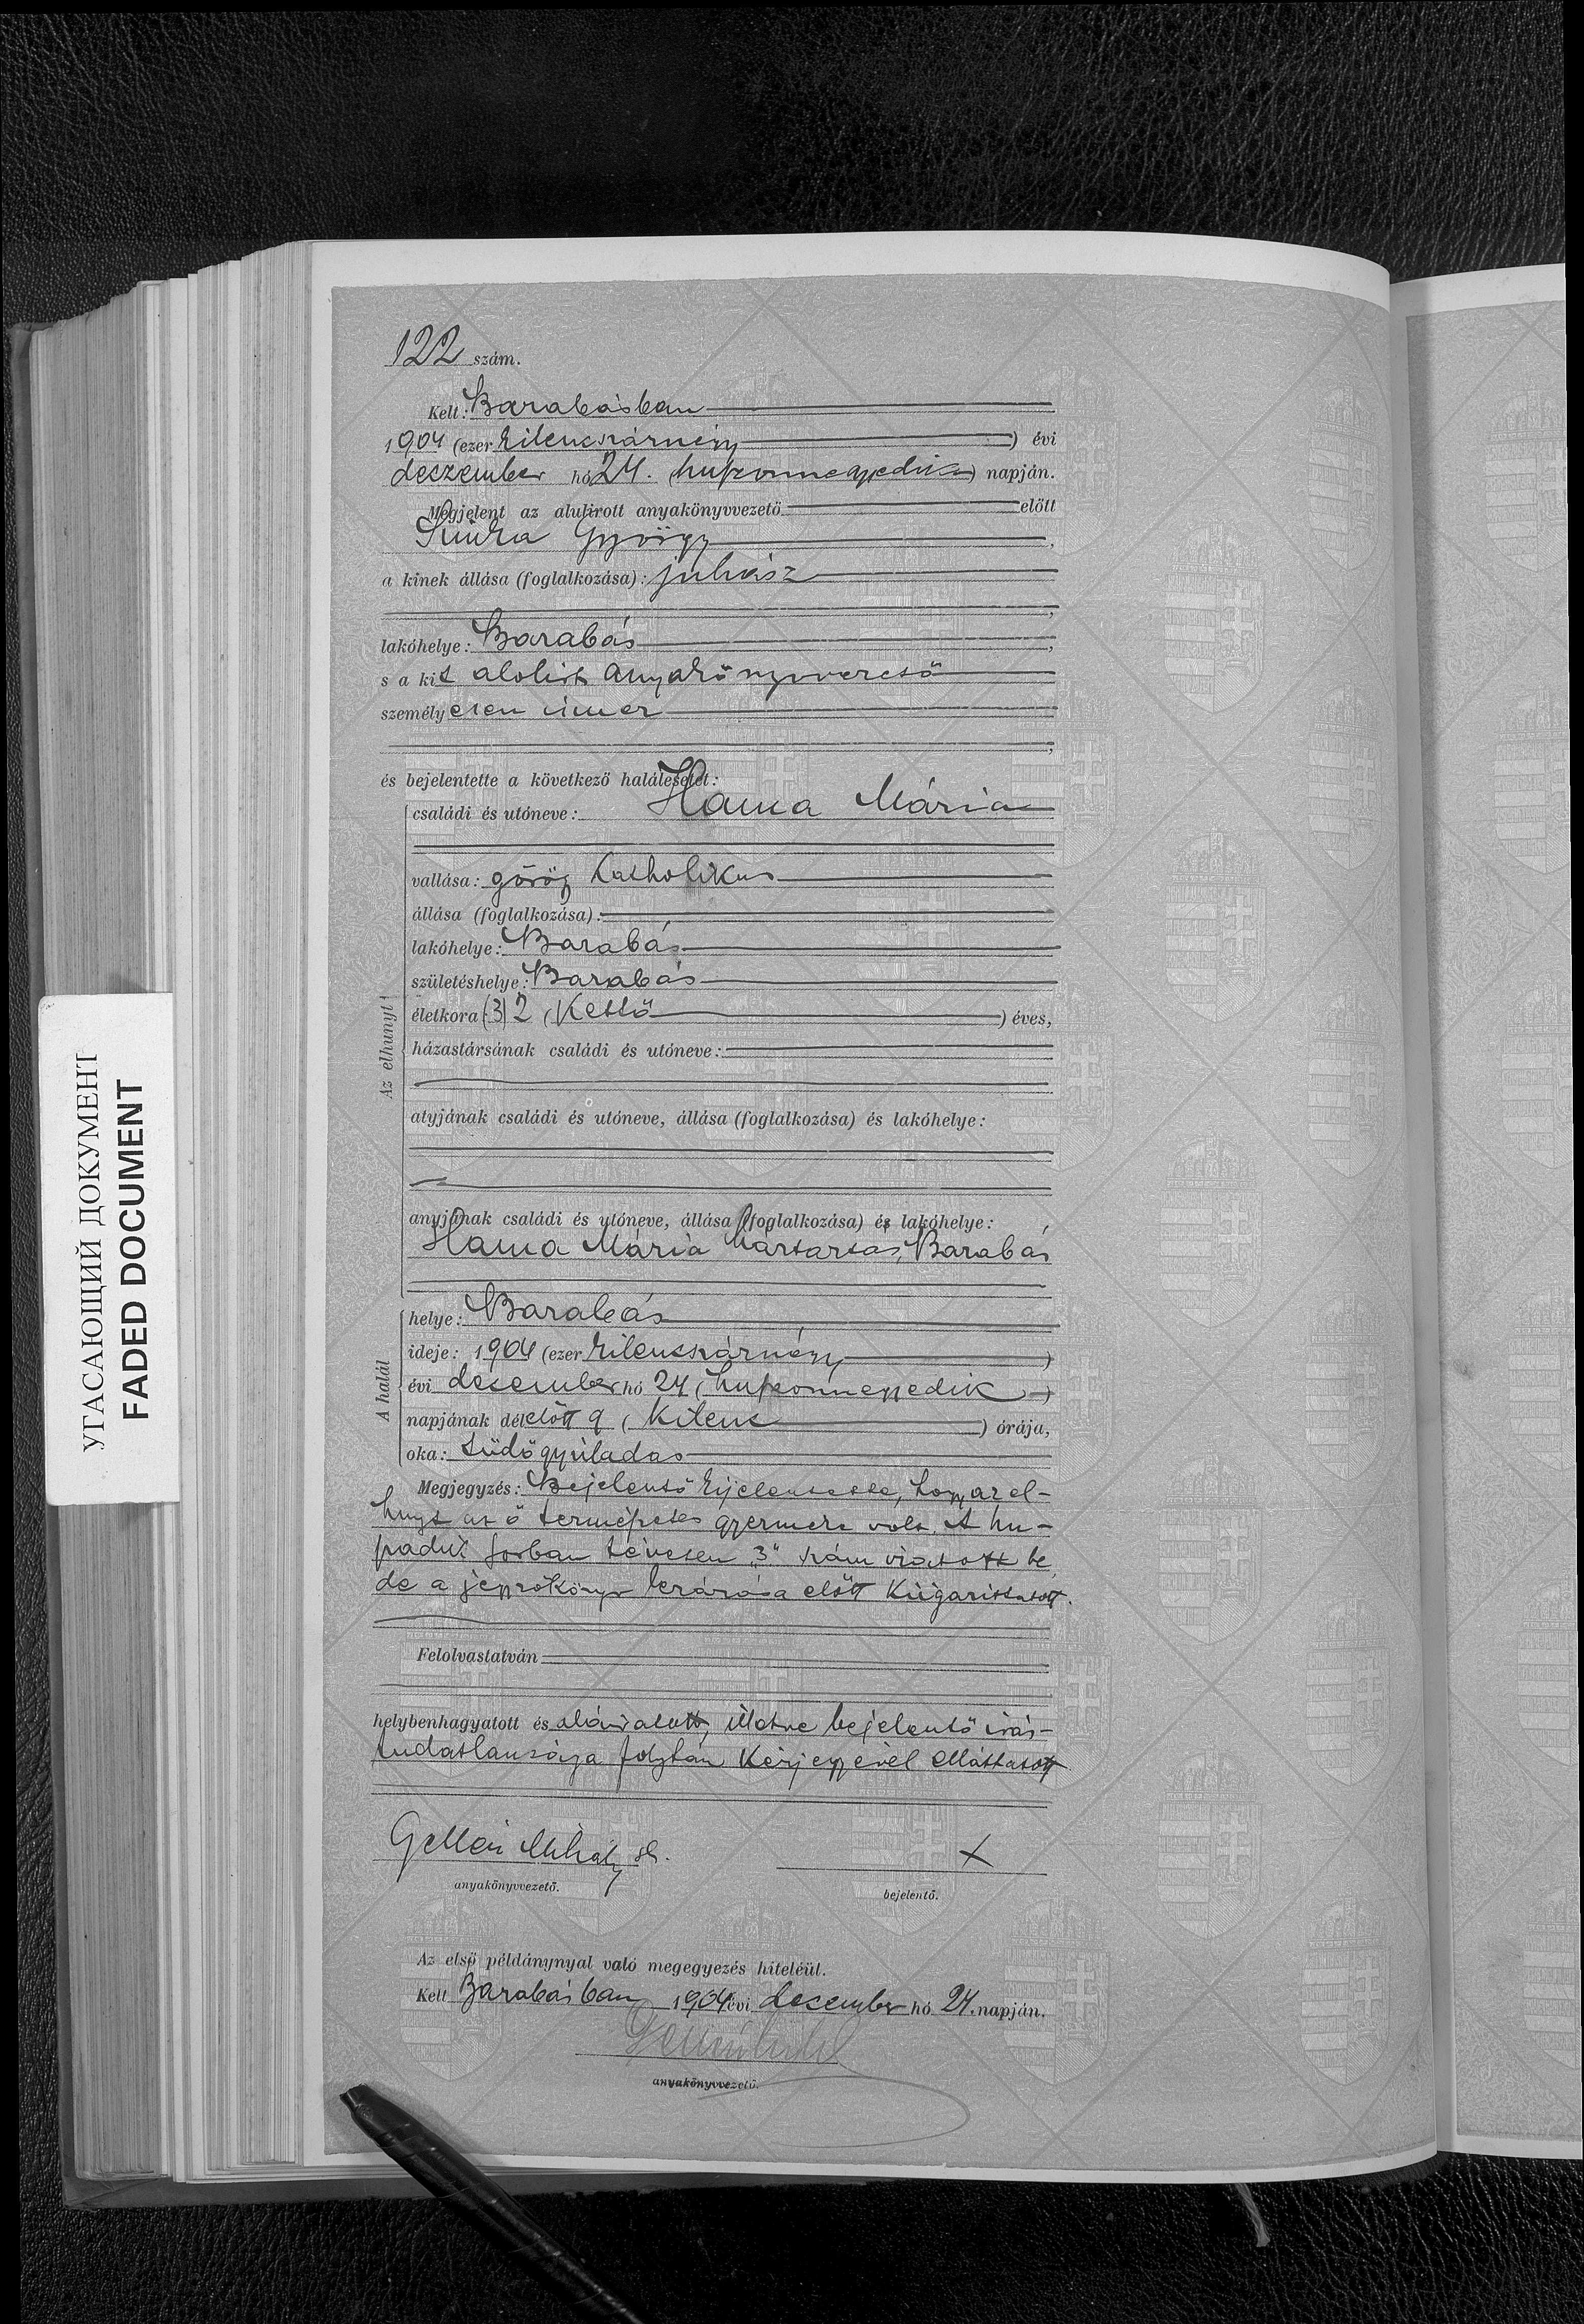 122 szám.
Kelt: Barabásban
1904 (ezer kilenczszáznégy) évi
deczember hó 24. (huszonnegyedik) napján.
Megjelent az alulirott anyakönyvvezető előtt
György
a kinek állása (foglalkozása): juhász
lakóhelye: Barabás
s a kit alolirt anyakönyvvezető
személyesen ismer
és bejelentette a következő halálesetet:
Az elhunyt
családi és utóneve: Hanka Mária
vallása: görög katholikus
állása (foglalkozása):
lakóhelye: Barabás
születéshelye: Barabás
életkora (3) 2 (Kettő) éves,
házastársának családi és utóneve:
atyjának családi és utóneve, állása (foglalkozása) és lakóhelye:
anyjának családi és utóneve, állása (foglalkozása) és lakóhelye:
Hanka Mária háztartás, Barabás
A halál
helye: Barabás
ideje: 1904 (ezer kilenczszáznégy)
évi deczember hó 24 (huszonnegyedik)
napjának délelőtt 9 (kilencz) órája,
oka: tüdőgyuladas
Megjegyzés: Bejelentő kijelentette, hogy az el-
hunyt az ő természetes gyermeke volt. A hu-
sorban tévesen "3" szám iratott be,
de a jegyzőkönyv lezárása előtt kiigazittatott.
Felolvastatván
helybenhagyatott és aláiratott, illetve bejelentő irás-
tudatlansága folytán kézjegyével elláttatott
Gellén Mihály sk.
X
anyakönyvvezető.
bejelentő.
Az első példánynyal való megegyezés hiteléül.
Kelt Barabásban 1904 évi deczember hó 24. napján.
anyakönyvvezető.
УГАСАЮЩИЙ ДОКУМЕНТ
FADED DOCUMENT